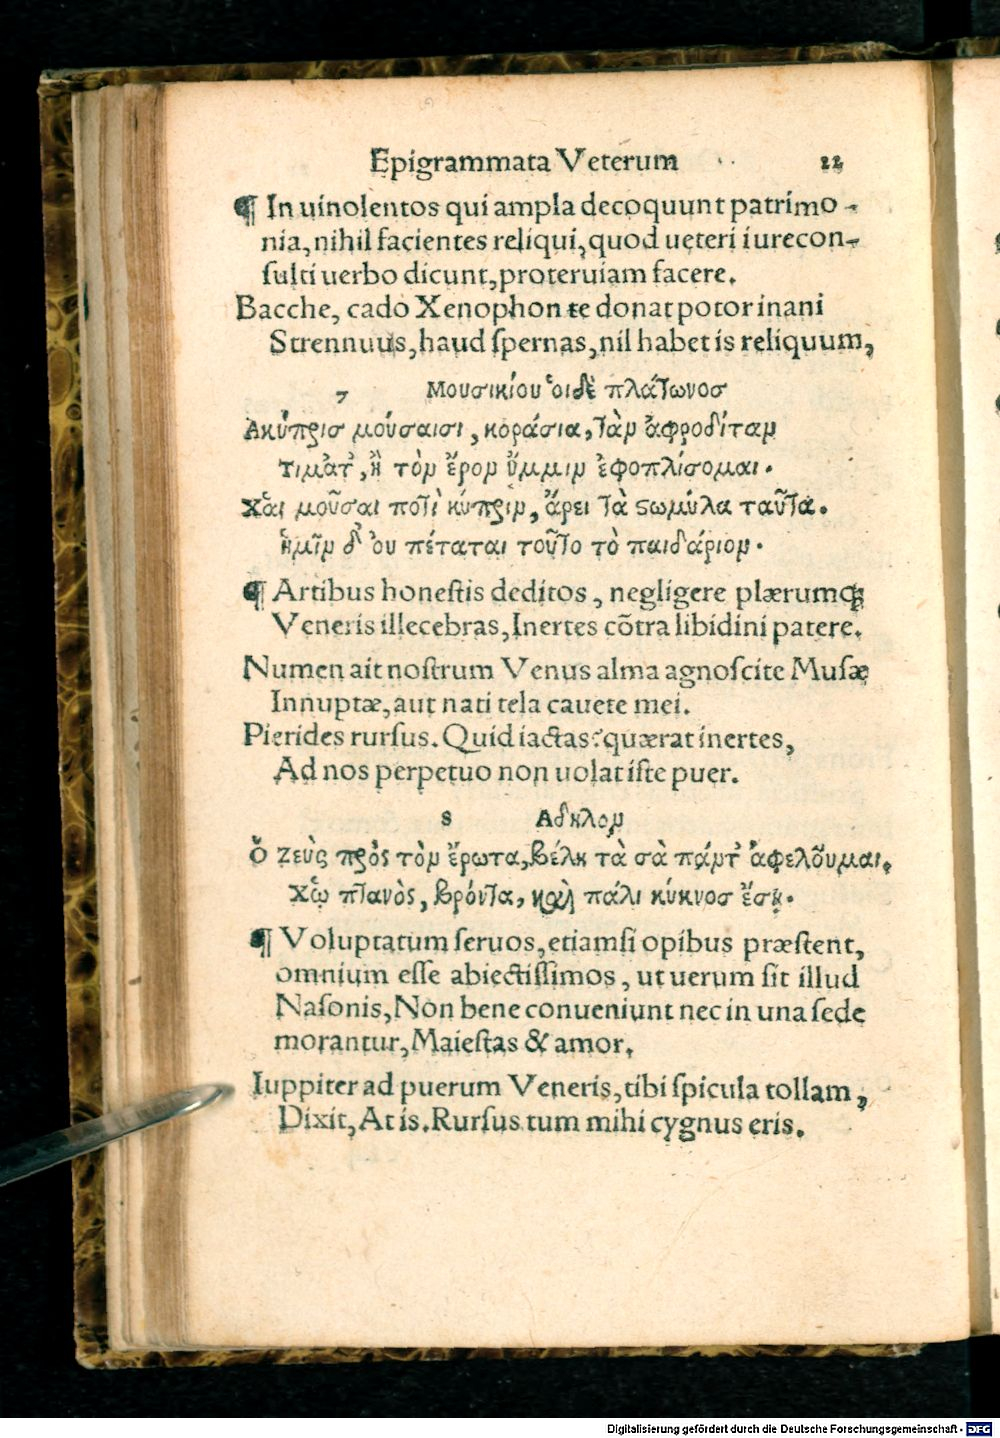 Epigrammata Veterum 22
¶ In uinolentos qui ampla decoquunt patrimo-
nia, nihil facientes reliqui, quod ueteri iurecon-
ſulti uerbo dicunt, proteruiam facere.
Bacche, cado Xenophon te donat potor inani
Strennuus, haud ſpernas, nil habet is reliquum,
7 Μουσικίου ὁι δὲ πλάτωνοσ
Ακύπρισ μούσαισι, κοράσια, τὰν ἀφροδίταν
τιμᾶτ', ἢ τὸν ἔρον ὔμμιν ἐφοπλίσομαι.
Χἁι μοῦσαι ποτὶ κύπριν, ἄρει τὰ στωμύλα ταῦτα.
ἡμῖν δ' ὀυ πέταται τοῦτο τὸ παιδάριον.
¶ Artibus honeſtis deditos, negligere plærumqꝫ
Veneris illecebras, Inertes cõtra libidini patere.
Numen ait noſtrum Venus alma agnoſcite Muſæ
Innuptæ, aut nati tela cauete mei.
Pierides rurſus. Quid iactas? quærat inertes,
Ad nos perpetuo non uolat iſte puer.
8 Αδηλον
Ὁ Ζεὺς πρὸς τὸν ἔρωτα, βέλη τὰ σὰ πάντ' ἀφελοῦμαι.
Χὡ πτανὸς, βρόντα, καὶ πάλι κύκνοσ ἔσῃ.
¶ Voluptatum ſeruos, etiamſi opibus præſtent,
omnium eſſe abiectiſſimos, ut uerum ſit illud
Naſonis, Non bene conueniunt nec in una ſede
morantur, Maieſtas & amor.
Iuppiter ad puerum Veneris, tibi ſpicula tollam,
Dixit, At is. Rurſus tum mihi cygnus eris.
Digitalisierung gefördert durch die Deutsche Forschungsgemeinschaft - DFG